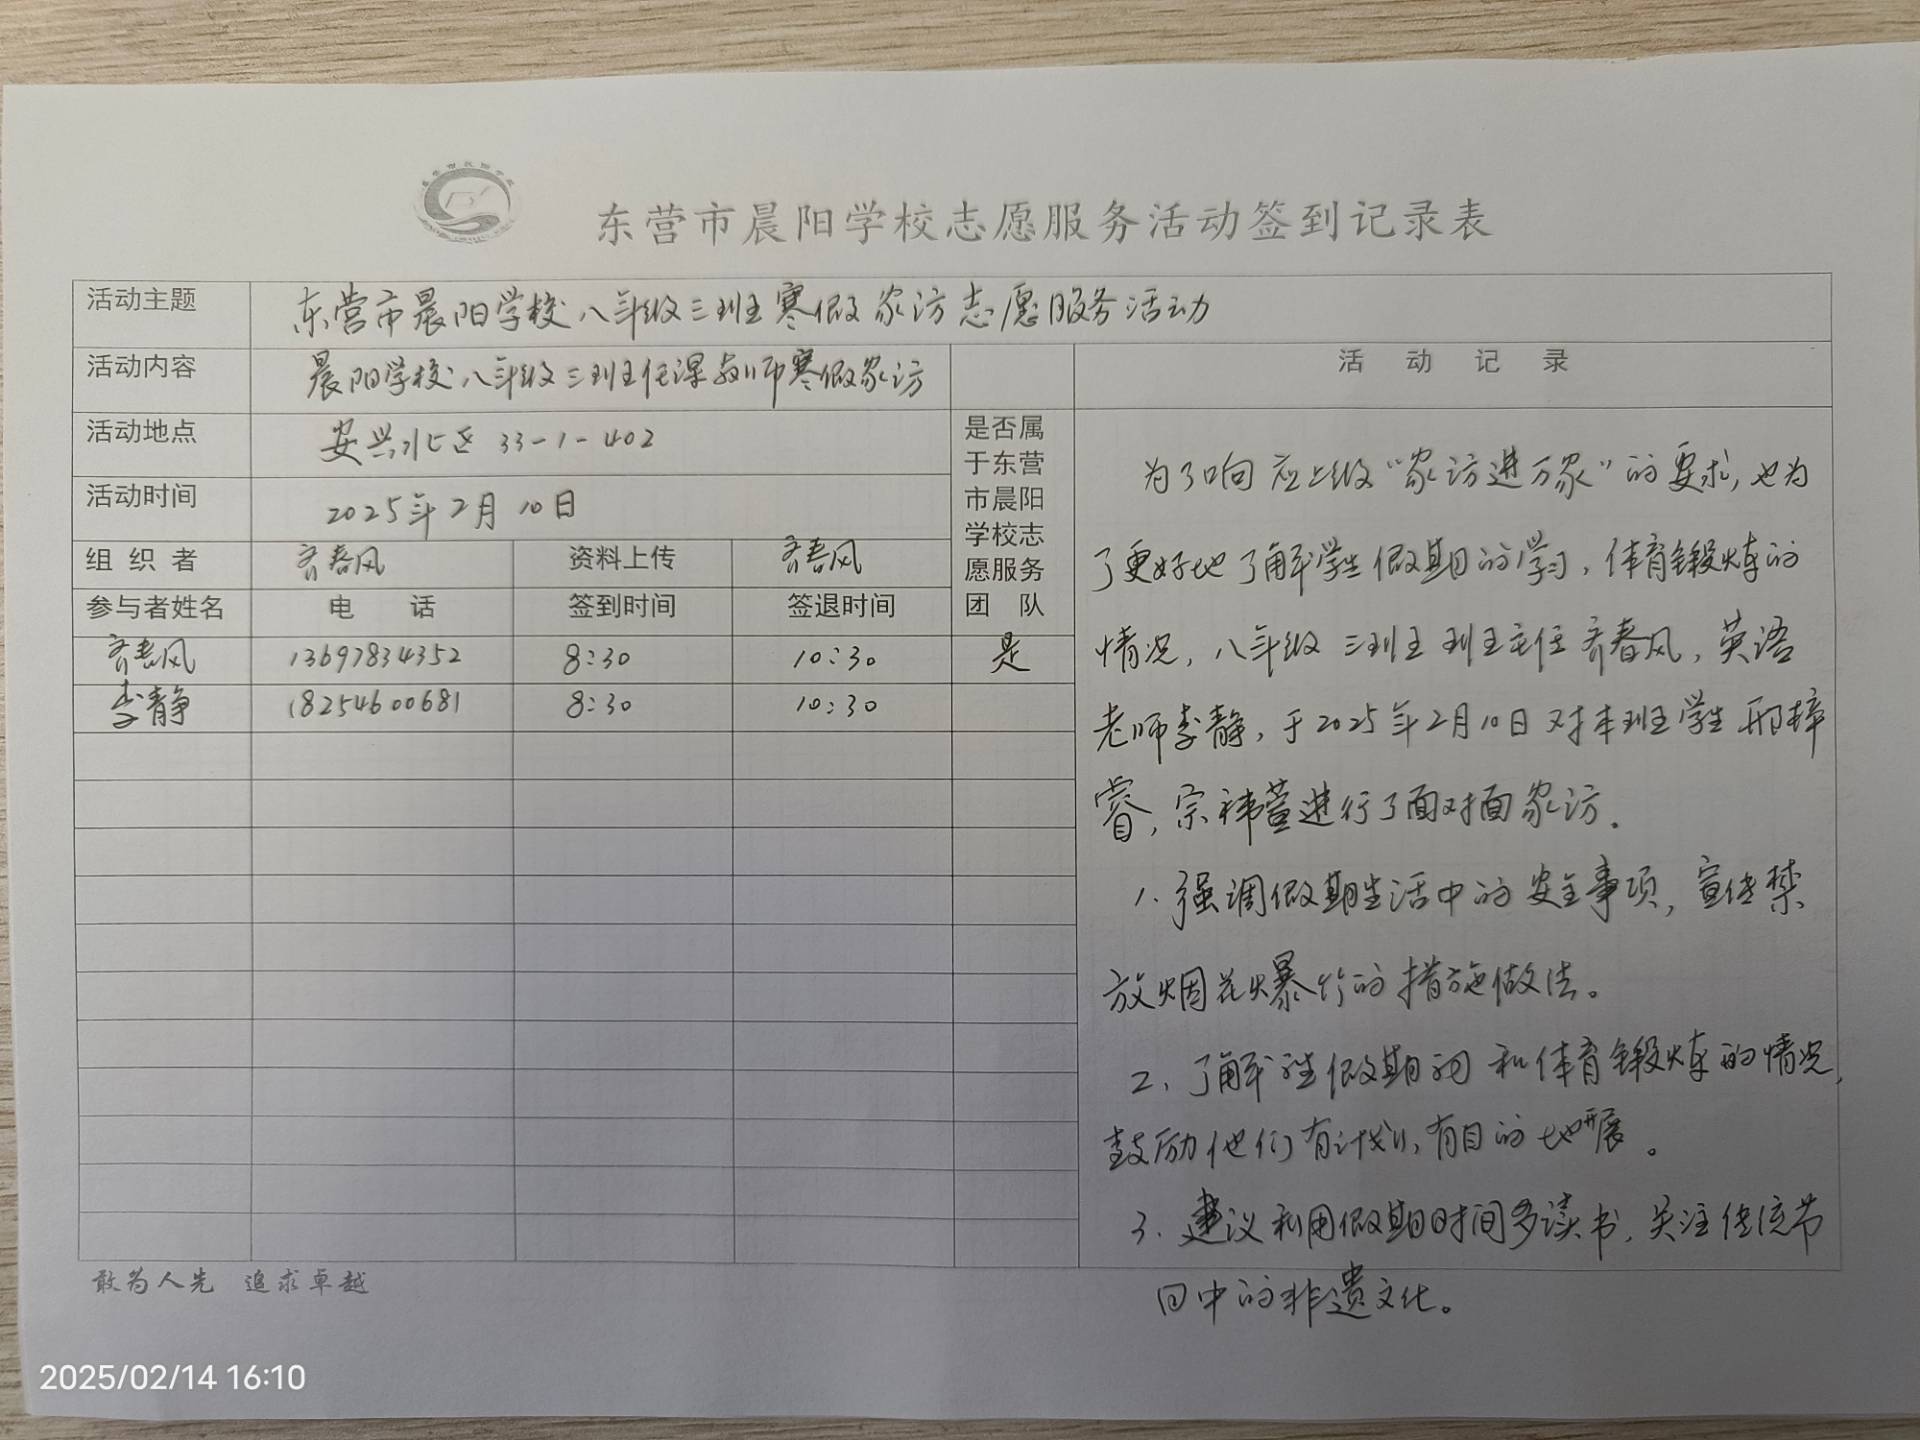 东营市晨阳学校志愿服务活动签到记录表
活动主题 东营市晨阳学校八年级三班寒假家访志愿服务活动
活动内容 晨阳学校八年级三班任课教师寒假家访
活动地点 安兴北区 33-1-402
活动时间 2025年2月10日
组织者 齐春风 资料上传 齐春风
参与者姓名 电话 签到时间 签退时间
是否属
于东营
市晨阳
学校志
愿服务
团队
齐春风 13697834352 8:30 10:30 是
李静 18254600681 8:30 10:30
活动记录
为了响应上级“家访进万家”的要求,也为
了更好地了解学生假期的学习,体育锻炼的
情况,八年级三班班主任齐春风,英语
老师李静,于2025年2月10日对本班学生邢梓
睿,宗祎萱进行了面对面家访.
1.强调假期生活中的安全事项,宣传禁
放烟花爆竹的措施做法。
2.了解学生假期学习和体育锻炼的情况,
鼓励他们有计划,有目的地开展。
3.建议利用假期时间多读书,关注传统节
日中的非遗文化。
敢为人先 追求卓越
2025/02/14 16:10